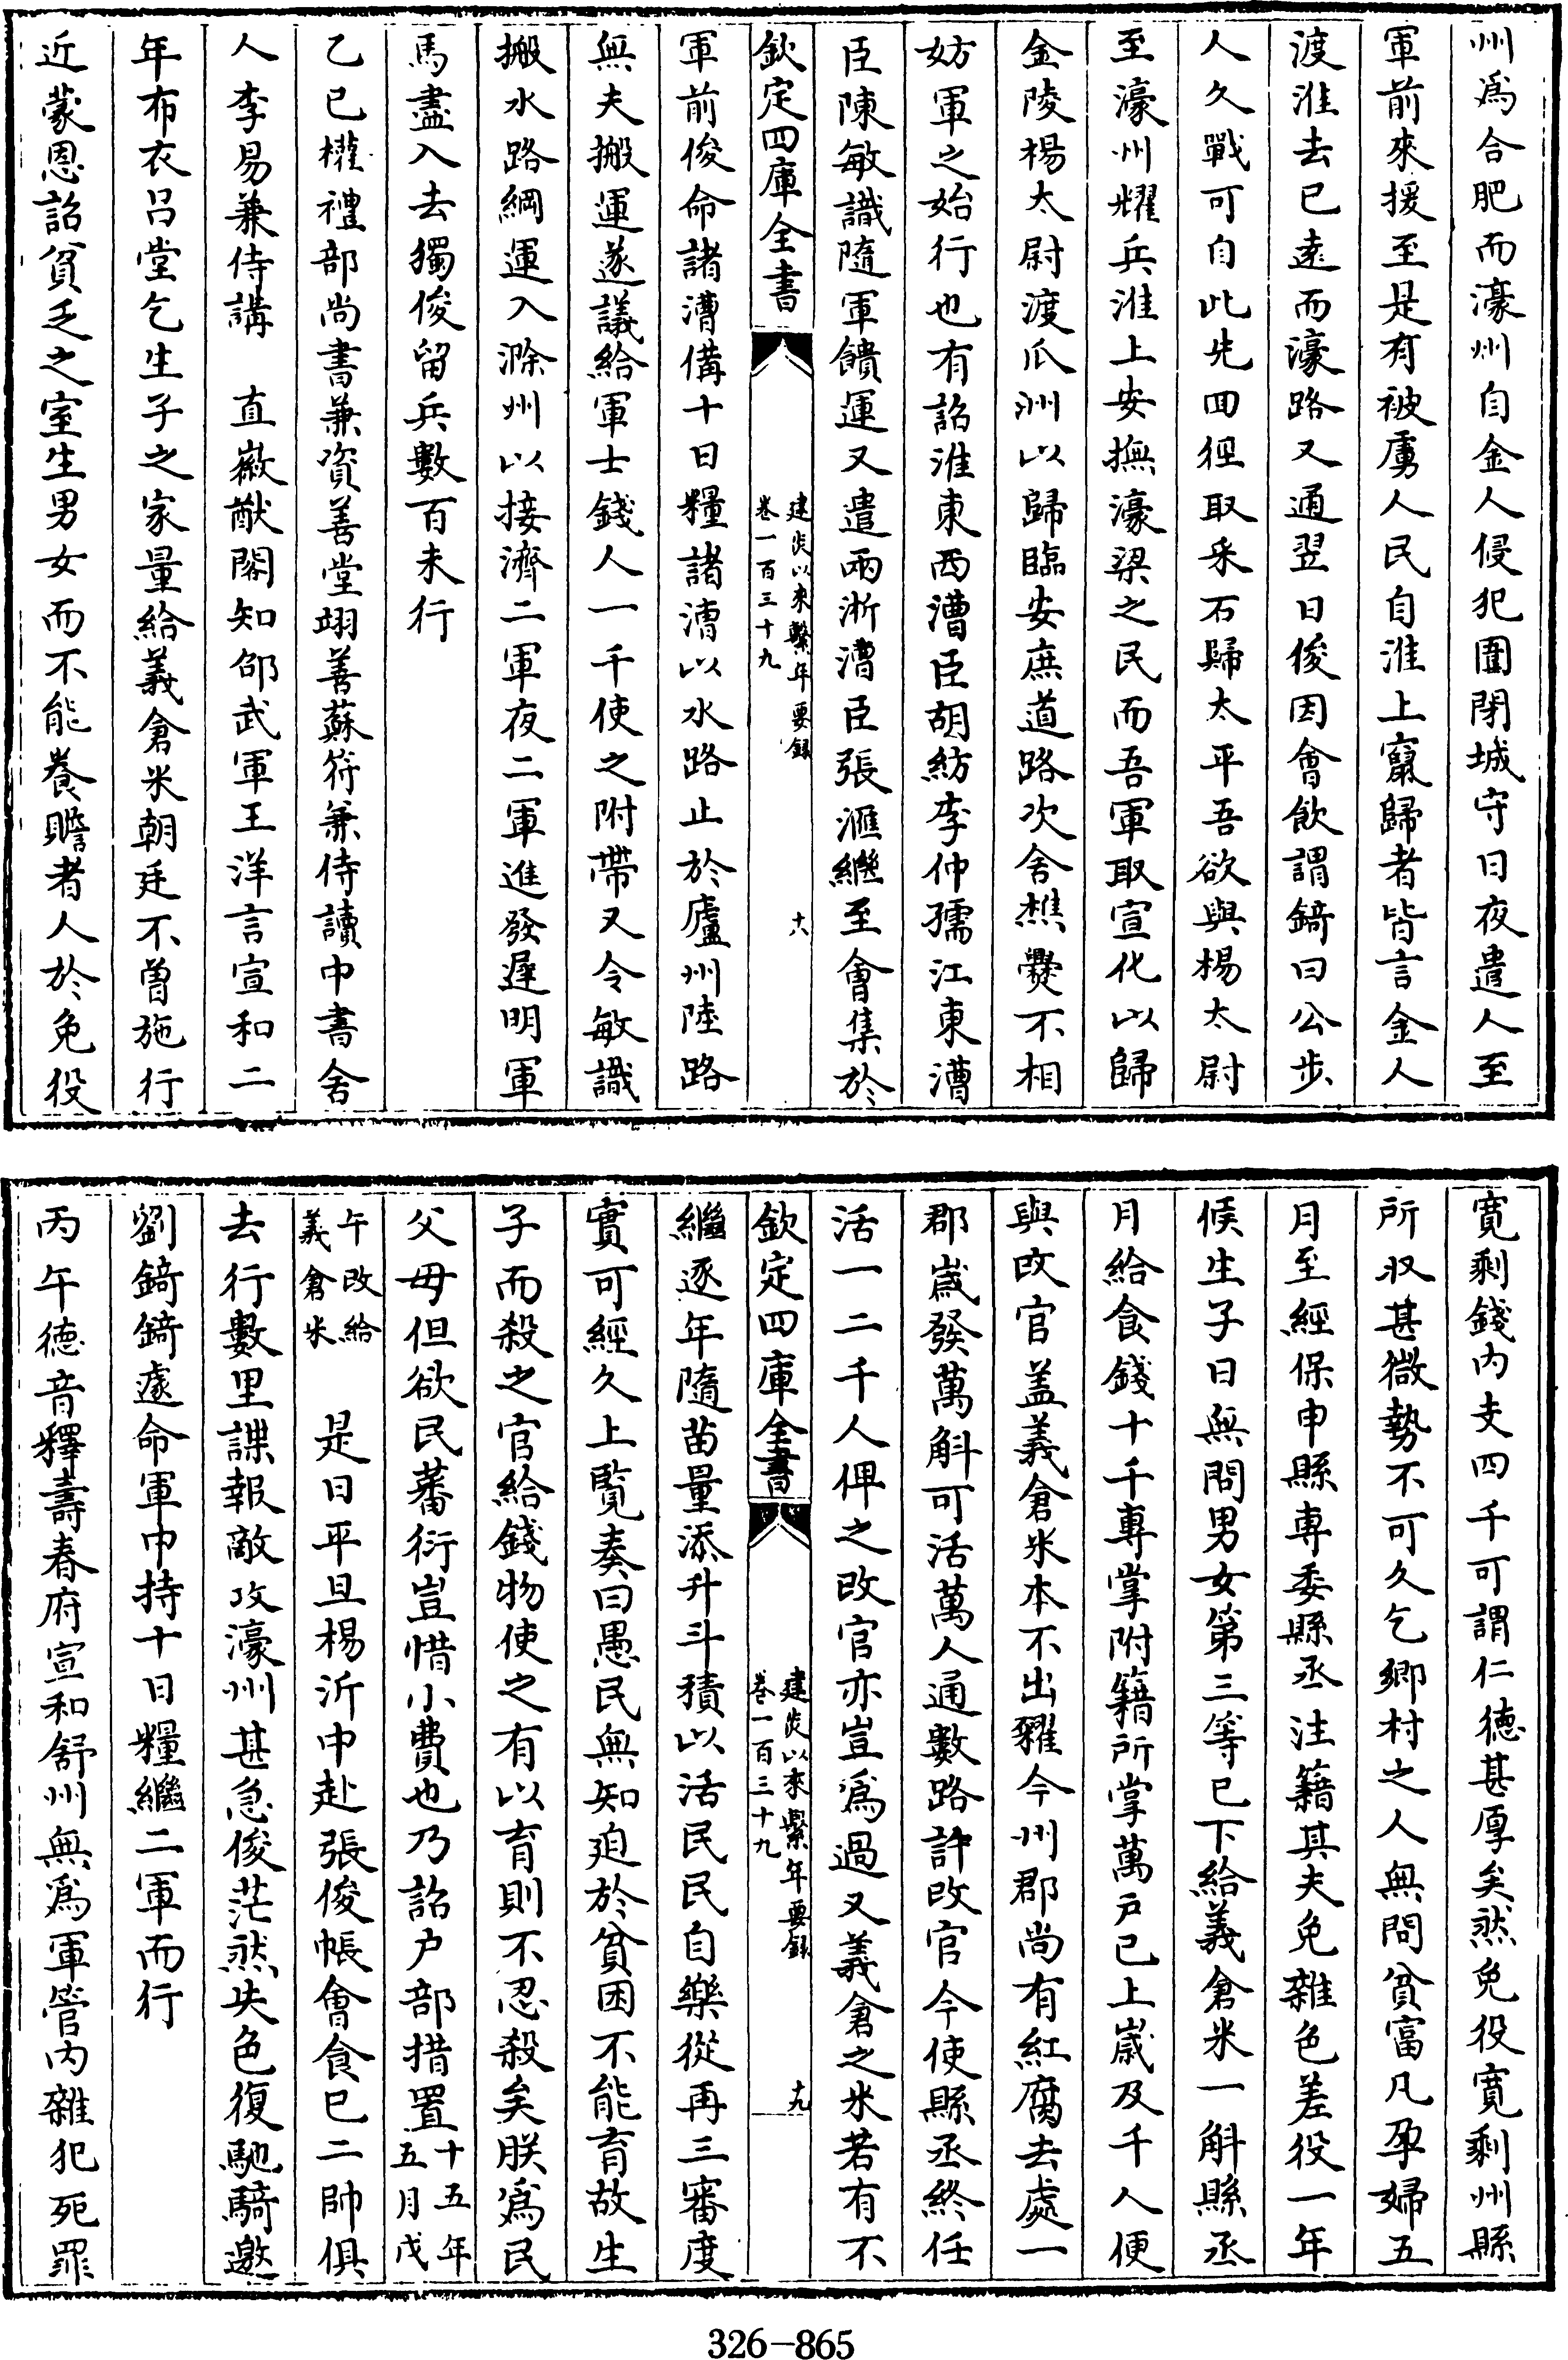 州為合肥而濠州自金人侵犯圍閉城守日夜遣人至
軍前來援至是有被虜人民自淮上竄歸者皆言金人
渡淮去已遠而濠路又通翌日俊因會飲謂錡曰公步
人久戰可自此先回徑取采石歸太平吾欲與楊太尉
至濠州耀兵淮上安撫濠梁之民而吾軍取宣化以歸
金陵楊太尉渡瓜洲以歸臨安庶道路次舍樵爨不相
妨軍之始行也有詔淮東西漕臣胡紡李仲孺江東漕
臣陳敏識隨軍饋運又遣兩浙漕臣張滙繼至會集於
欽定四庫全書
建炎以來繫年要録
卷一百三十九
十八
軍前俊命諸漕備十日糧諸漕以水路止於廬州陸路
無夫搬運遂議給軍士錢人一千使之附帶又令敏識
搬水路綱運入滁州以接濟二軍夜二軍進發遲明軍
馬盡入去獨俊留兵數百未行
乙巳權禮部尚書兼資善堂翊善蘇符兼侍讀中書舍
人李易兼侍講 直徽猷閣知邵武軍王洋言宣和二
年布衣呂堂乞生子之家量給義倉米朝廷不曾施行
近蒙恩詔貧乏之室生男女而不能養贍者人於免役
寬剩錢内支四千可謂仁德甚厚矣然免役寬剩州縣
所収甚微勢不可久乞鄉村之人無問貧富凡孕婦五
月至經保申縣專委縣丞注籍其夫免雜色差役一年
候生子日無問男女第三等已下給義倉米一斛縣丞
月給食錢十千專掌附籍所掌萬戶已上歲及千人便
與改官盖義倉米本不出糶今州郡尚有紅腐去處一
郡歲發萬斛可活萬人通數路許改官今使縣丞終任
活一二千人俾之改官亦豈為過又義倉之米若有不
欽定四庫全書
建炎以來繫年要録
卷一百三十九
十九
繼逐年隨苗量添升斗積以活民民自樂從再三審度
實可經久上覧奏曰愚民無知迫於貧困不能育故生
子而殺之官給錢物使之有以育則不忍殺矣朕為民
父母但欲民蕃衍豈惜小費也乃詔户部措置十五年五月戊
午改給義倉米 是日平旦楊沂中赴張俊帳會食已二帥俱
去行數里諜報敵攻濠州甚急俊茫然失色復馳騎邀
劉錡錡遽命軍中持十日糧繼二軍而行
丙午德音釋壽春府宣和舒州無為軍管内雜犯死罪
326-865